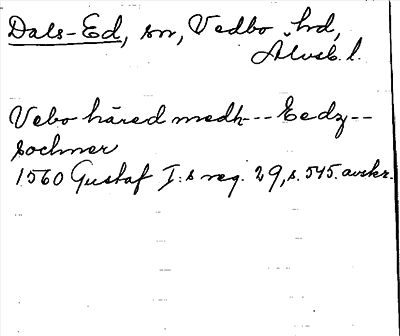 Dals-Ed, sn, Vedbo hd,
Älvsb. l.
Vebo häred medh --- Eedz --
sochner
1560 Gustaf I:s reg. 29, s. 545. avskr.